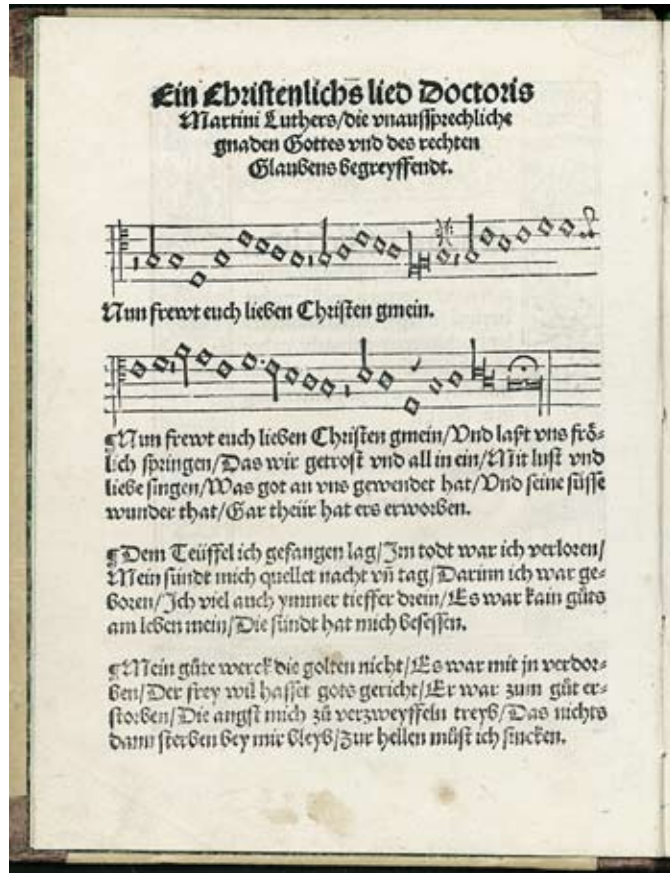 Ein Christenlichs lied Doctoris
Martini Luthers/die vnaussprechliche
gnaden Gottes vnd des rechten
Glaubens begreyffendt.
Nun frewt euch lieben Christen gmein.
¶Nun frewt euch lieben Christen gmein/Vnd laßt vns frö⸗
lich springen/Das wir getrost vnd all in ein/Mit lust vnd
liebe singen/Was got an vns gewendet hat/Vnd seine süsse
wunder that/Gar theür hat ers erworben.
¶Dem Teüffel ich gefangen lag/Im todt war ich verloren/
Mein sündt mich quellet nacht vn̄ tag/Darinn ich war ge⸗
boren/Ich viel auch ymmer tieffer drein/Es war kain gůts
am leben mein/Die sündt hat mich besessen.
¶Mein gůte werck die golten nicht/Es war mit jn verdor⸗
ben/Der frey wil hasset gots gericht/Er war zum gůt er⸗
storben/Die angst mich zů verzweyffeln treyb/Das nichts
dann sterben bey mir bleyb/Zur hellen můst ich sincken.